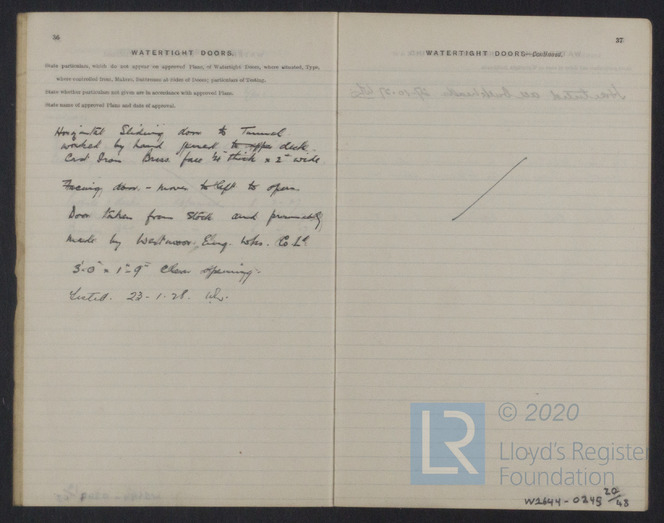 36
WATERTIGHT DOORS.
State particulars, which do not appear on approved Plans, of Watertight Doors, where situated, Type,
where controlled from, Makers, Thicknesses at sides of Doors; particulars of Testing.
State whether particulars not given are in accordance with approved Plans.
State name of approval Plans and date of approval.
Horizontal Sliding door to Tunnel
worked by hand geared to upper deck.
Cast Iron Brass face ¼" thick × 2" wide
Facing door - moves to left to open
Door taken from stock and
made by Westmoor Eng. Wks. Co Ld
3'-0" × 1'-9" Clear opening.
Tested. 23-1-28.
37
WATERTIGHT DOORS—Continued.
LR
© 2020
Lloyd's Register
Foundation
W1644-0245 20/48